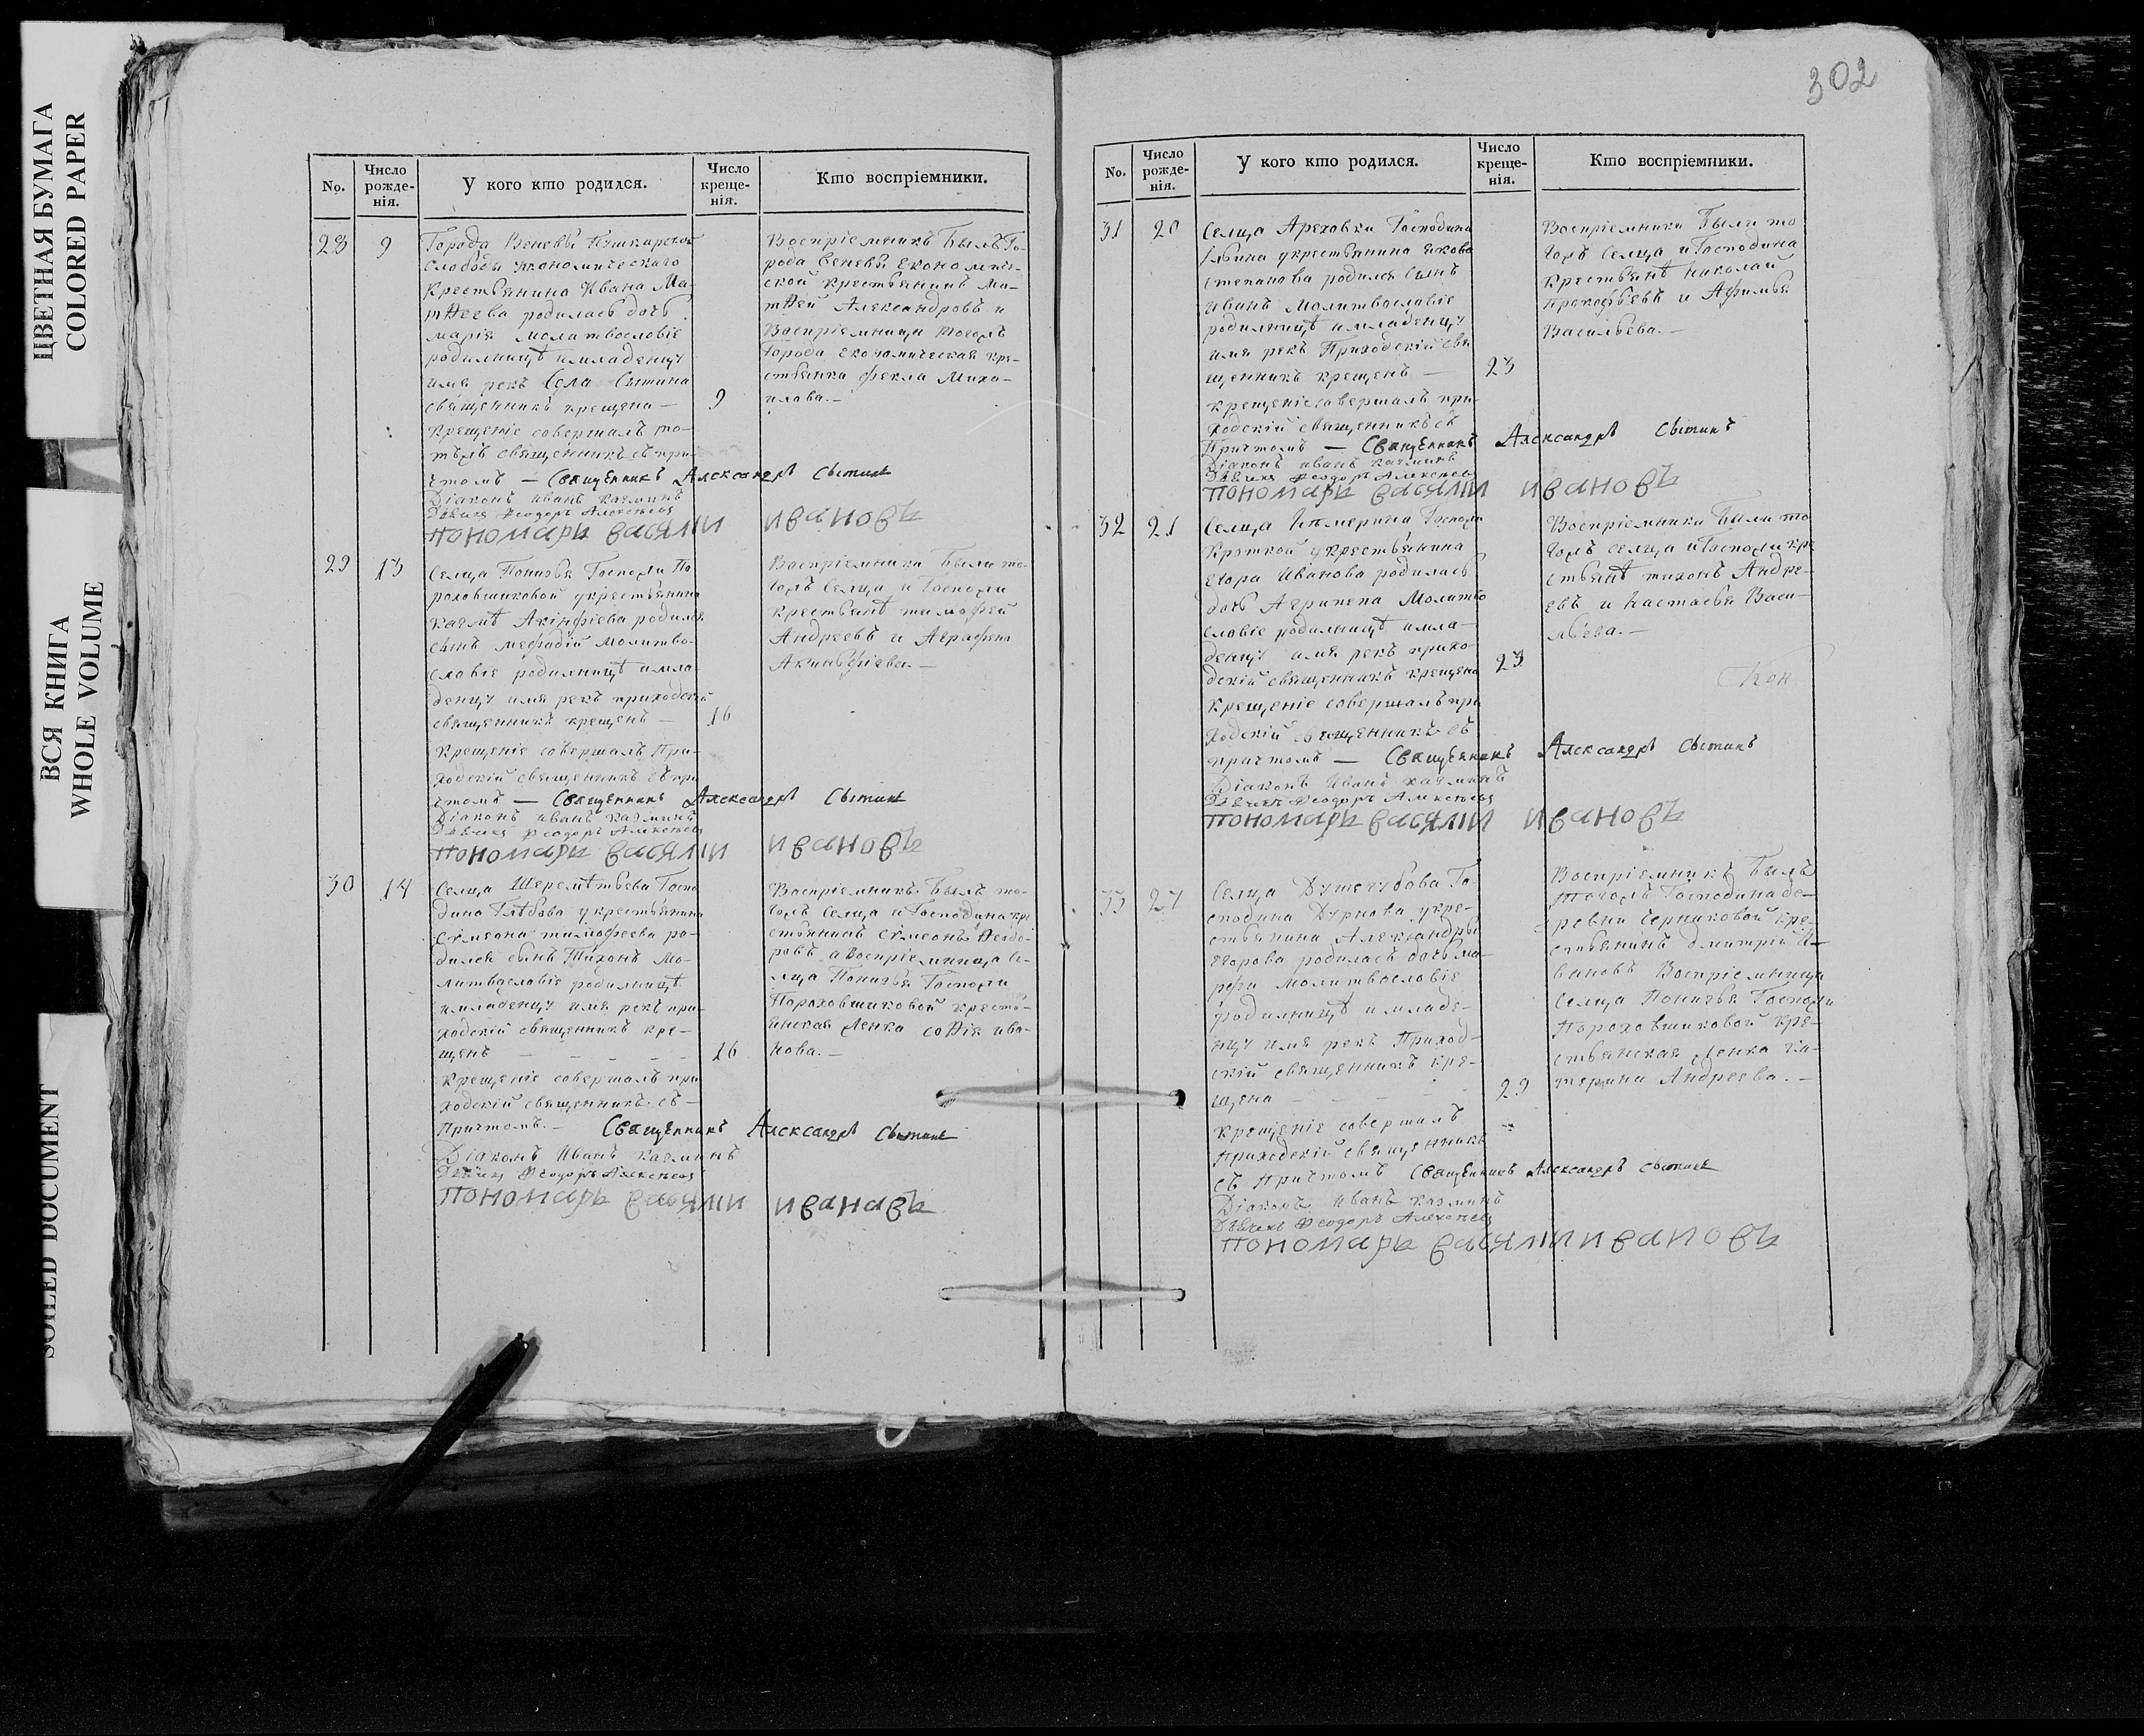 ЦВЕТНАЯ БУМАГА
COLORED PAPER
ВСЯ КНИГА
WHOLE VOLUME
SOILED DOCUMENT
No.
Число рожденія.
У кого кто родился.
Число крещенія.
Кто воспріемники.
28
9
Города Веневы Пушкарской
слободы Экономическаго
крестьянина Ивана Ма-
тѳеева родилась дочь
марія молитвословіе
родилницѣ имладенцу
имя рекъ Села Сытина
священникъ крещена —
9
крещеніе совершалъ то-
тъже священникъ съ при-
чтомъ — Священникъ Александръ Сытинъ
Діаконъ Иванъ Казминъ
Дьячекъ Ѳеодоръ Алексѣевъ
Пономарь Василии Ивановъ
Воспріемникъ Былъ Го-
рода Веневы Економиче-
ской крестьянинъ Ма-
тѳей Александровъ и
Воспріемница тогожъ
города Економическая кре-
стьянка Фекла Миха-
илова. —
29
13
Селца Понизья Госпожи По
роховщиковой укрестьянина
казмы Акінфіева родился
сынъ мефодій молитво-
словіе родилницѣ имла-
денцу имя рекъ приходскій
священникъ крещенъ —
16
крещеніе совершалъ При-
ходскій священникъ съ при
чтомъ — Священникъ Александръ Сытинъ
Діаконъ Иванъ Казминъ
Дьячекъ Ѳеодоръ Алексѣевъ
Пономарь Василии Ивановъ
Воспріемники Были то-
гожъ Селца и Госпожи
крестьянѣ тимофей
Андреевъ и Аграфена
Акинѳфіева. —
30
14
Селца Шереметьева Госпо
дина Глѣбова укрестьянина
Сумеона тимофеева ро-
дился сынъ Тихонъ Мо-
литвословіе родилницѣ
имладенцу имя рекъ при-
ходскій священникъ кре-
щенъ — — — —
16
крещеніе совершалъ при
ходскій священникъ съ —
Причтомъ. — Священникъ Александръ Сытинъ
Діаконъ Иванъ Казминъ
Дьячекъ Ѳеодоръ Алексѣевъ
Пономарь Василии Ивановъ
Воспріемникъ Былъ то-
гожъ Селца и Господина кре
стьянинъ Сумеонъ Ѳеодо-
ровъ а Воспріемница Се-
лца Понизья Госпожи
Пороховщиковой кресть-
янская Денка Софія Ива-
нова. —
302
No.
Число рожденія.
У кого кто родился.
Число крещенія.
Кто воспріемники.
31
20
Селца Ареховки Господина
Ильина укрестьянина якова
степанова родился Сынъ
Иванъ Молитвословіе
родилницѣ имладенцу
имя рекъ Приходскій свя
щенникъ крещенъ —
23
крещеніе совершалъ при-
ходскій священникъ съ
Причтомъ — Священникъ Александръ Сытинъ
Діаконъ Иванъ Казминъ
Дьячекъ Ѳеодоръ Алексѣевъ
Пономарь Василии Ивановъ
Воспріемники Были то
гожъ Селца и Господина
крестьянѣ Николай
Прокофьевъ и Афимья
Васильева. —
32
21
Селца Госпожи
Кроткой укрестьянина
Егора Иванова родилась
дочь Агрипена Молитво
словіе родилницѣ имла-
денцу имя рекъ прихо-
дскій священникъ крещена
23
крещеніе совершалъ при
ходскій священникъ съ
причтомъ — Священникъ Александръ Сытинъ
Діаконъ Иванъ Казминъ
Дьячекъ Ѳеодоръ Алексѣевъ
Пономарь Василии Ивановъ
Воспріемники Были то
гожъ Селца и Госпожи кре
стьянѣ тихонъ Андре-
евъ и Настасья Васи-
льева. —
33
27
Селца Го-
сподина Дурнова укре-
стьянина Александры
Егорова родилась дочь ма-
рфа Молитвословіе
родилницѣ имладе-
нцу имя рекъ Приход-
скій священникъ кре-
щена — — — —
29
крещеніе совершалъ
Приходскій священникъ
съ Причтомъ Священникъ Александръ Сытинъ
Діаконъ Иванъ Казминъ
Дьячекъ Ѳеодоръ Алексѣевъ
Пономарь Василии Ивановъ
Воспріемникъ Былъ
тогожъ Господина де-
ревни Черниковой кре-
стьянинъ Дмитрій И-
вановъ Воспріемница
Селца Понизья Госпожи
Пороховщиковой кре-
стьянская Денка ка-
терина Андреева. —